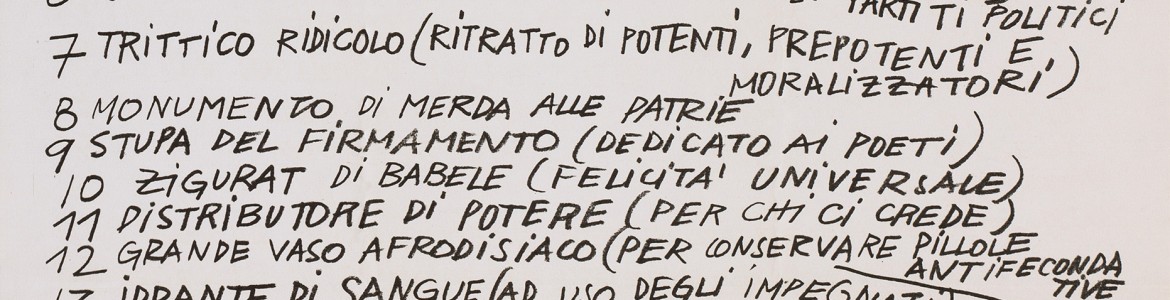 PARTITI POLITICI
7 TRITTICO RIDICOLO (RITRATTO DI POTENTI, PREPOTENTI E
MORALIZZATORI)
8 MONUMENTO DI MERDA ALLE PATRIE
9 STUPA DEL FIRMAMENTO (DEDICATO AI POETI)
10 ZIGURAT DI BABELE (FELICITA' UNIVERSALE)
11 DISTRIBUTORE DI POTERE (PER CHI CI CREDE)
12 GRANDE VASO AFRODISIACO (PER CONSERVARE PILLOLE
ANTIFECONDA
TIVE
13 IDRANTE DI SANGUE (AD USO DEGLI IMPEGNATI)